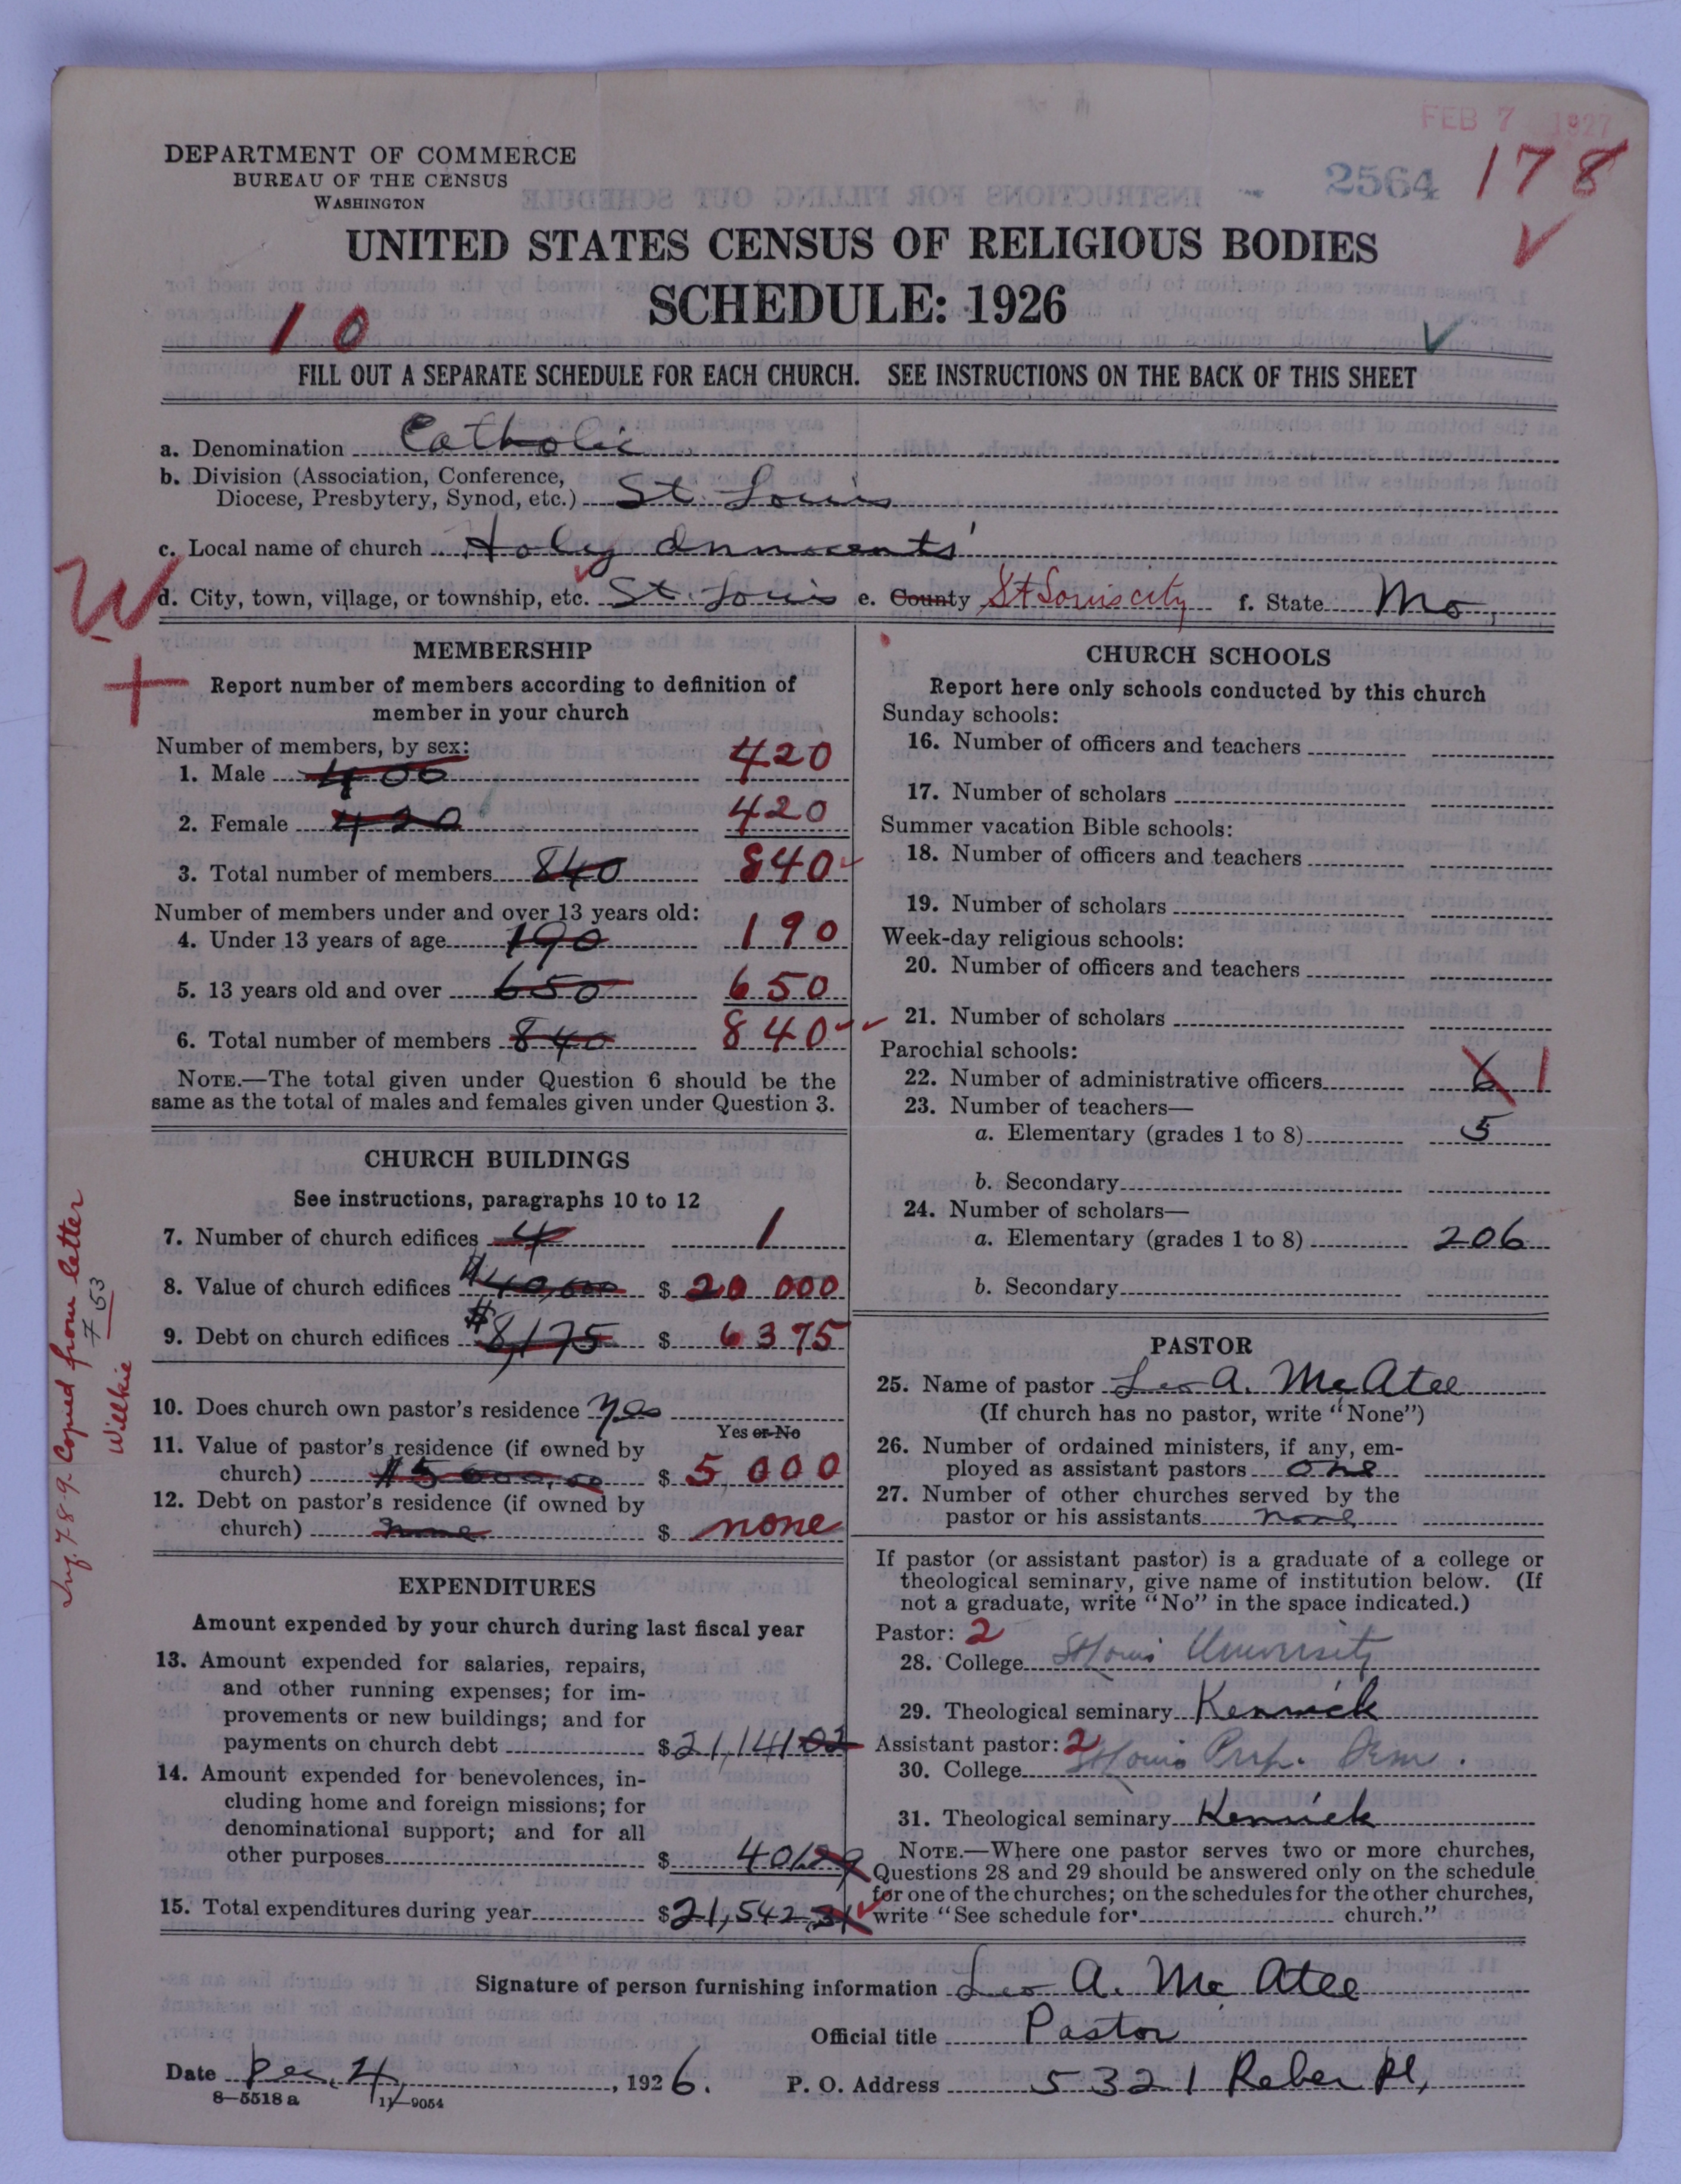 FEB 7 1927
2564 178
DEPARTMENT OF COMMERCE
BUREAU OF THE CENSUS
WASHINGTON
UNITED STATES CENSUS OF RELIGIOUS BODIES
SCHEDULE: 1926
10
FILL OUT A SEPARATE SCHEDULE FOR EACH CHURCH. SEE INSTRUCTIONS ON THE BACK OF THIS SHEET
a. Denomination Catholic
b. Division (Association, Conference,
Diocese, Presbytery, Synod, etc.) St. Louis
c. Local name of church Holy Innocents'
W
d. City, town, village, or township, etc. St. Louis e. County St Louis city f. State Mo.
MEMBERSHIP
Report number of members according to definition of
member in your church
Number of members, by sex:
1. Male 400 420
2. Female 420 420
3. Total number of members 840 840
Number of members under and over 13 years old:
4. Under 13 years of age 190 190
5. 13 years old and over 650 650
6. Total number of members 840 840
NOTE.—The total given under Question 6 should be the
same as the total of males and females given under Question 3.
CHURCH BUILDINGS
See instructions, paragraphs 10 to 12
7. Number of church edifices 4 1
8. Value of church edifices $40,000 $ 20 000
9. Debt on church edifices $8,175 $ 6375
10. Does church own pastor's residence Yes
Yes or No
11. Value of pastor's residence (if owned by
church) $5000.00 $ 5,000
12. Debt on pastor's residence (if owned by
church) none $ none
Inq. 7-8-9. Copied from letter
Willkie 7153
EXPENDITURES
Amount expended by your church during last fiscal year
13. Amount expended for salaries, repairs,
and other running expenses; for im-
provements or new buildings; and for
payments on church debt $21,141 02
14. Amount expended for benevolences, in-
cluding home and foreign missions; for
denominational support; and for all
other purposes $ 401 29
15. Total expenditures during year $21,542.31
CHURCH SCHOOLS
Report here only schools conducted by this church
Sunday schools:
16. Number of officers and teachers
17. Number of scholars
Summer vacation Bible schools:
18. Number of officers and teachers
19. Number of scholars
Week-day religious schools:
20. Number of officers and teachers
21. Number of scholars
Parochial schools:
22. Number of administrative officers 6 1
23. Number of teachers—
a. Elementary (grades 1 to 8) 5
b. Secondary
24. Number of scholars—
a. Elementary (grades 1 to 8) 206
b. Secondary
PASTOR
25. Name of pastor Leo A. McAtee
(If church has no pastor, write "None")
26. Number of ordained ministers, if any, em-
ployed as assistant pastors one
27. Number of other churches served by the
pastor or his assistants none
If pastor (or assistant pastor) is a graduate of a college or
theological seminary, give name of institution below. (If
not a graduate, write "No" in the space indicated.)
Pastor: 2
28. College St Louis University
29. Theological seminary Kenrick
Assistant pastor: 2
30. College St Louis Prep. Sem.
31. Theological seminary Kenrick
NOTE.—Where one pastor serves two or more churches,
Questions 28 and 29 should be answered only on the schedule
for one of the churches; on the schedules for the other churches,
write "See schedule for church."
Signature of person furnishing information Leo A. McAtee
Official title Pastor
Date Dec. 4, 1926. P. O. Address 5321 Reber Pl,
8—5518 a 11—9054